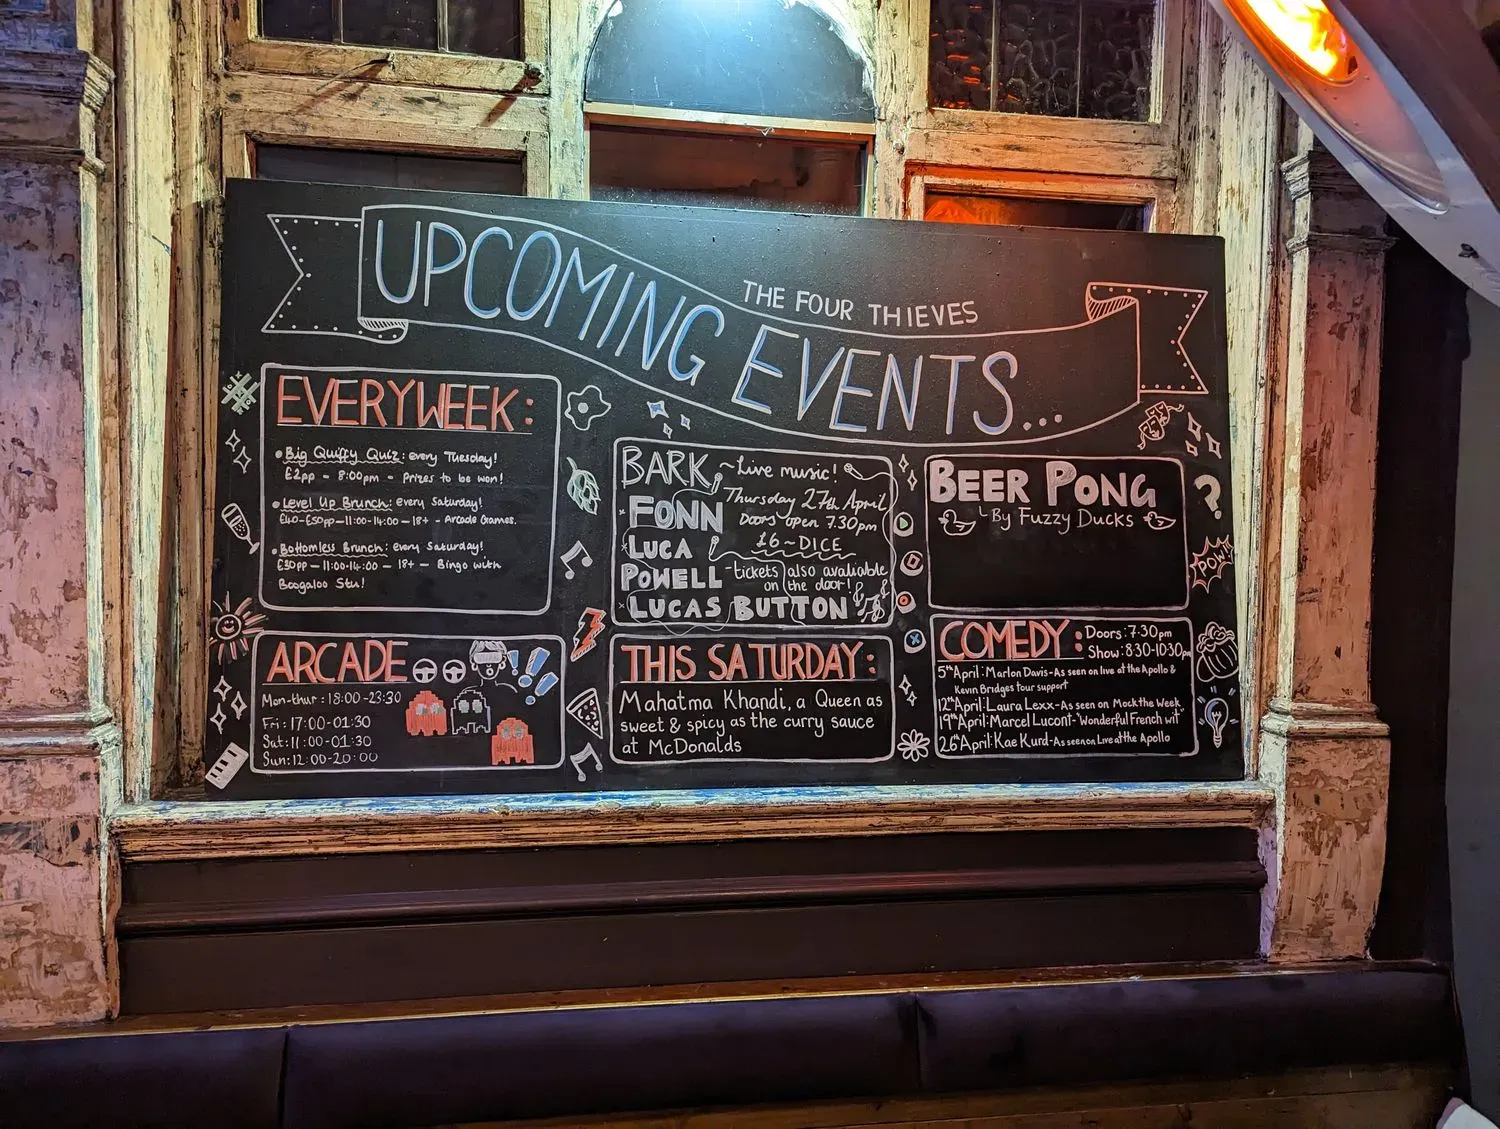 UPCOMING EVENTS...
THE FOUR THIEVES
EVERYWEEK:
• Big Quiffy Quiz: every Tuesday!
£2pp - 8:00pm - Prizes to be won!
• Level Up Brunch: every Saturday!
£40-£50pp-11:00-14:00-18+ - Arcade Games.
• Bottomless Brunch: every Saturday!
£30pp-11:00-14:00-18+ - Bingo with
Boogaloo Stu!
ARCADE
Mon-thur: 18:00-23:30
Fri: 17:00-01:30
Sat: 11:00-01:30
Sun: 12:00-20:00
BARK ~Live music!
Thursday 27th April
FONN
Doors open 7.30pm
LUCA
£6~DICE
POWELL
-tickets also avaliable
on the door!
LUCAS BUTTON
THIS SATURDAY:
Mahatma Khandi, a Queen as
sweet & spicy as the curry sauce
at McDonalds
BEER PONG
By Fuzzy Ducks
?
POW!
COMEDY: Doors: 7:30pm
Show: 8:30-10:30pm
5th April: Marlon Davis-As seen on live at the Apollo &
Kevin Bridges tour support
12th April: Laura Lexx-As seen on Mock the Week
19th April: Marcel Lucont-"Wonderful French wit"
26th April: Kae Kurd-As seen on Live at the Apollo